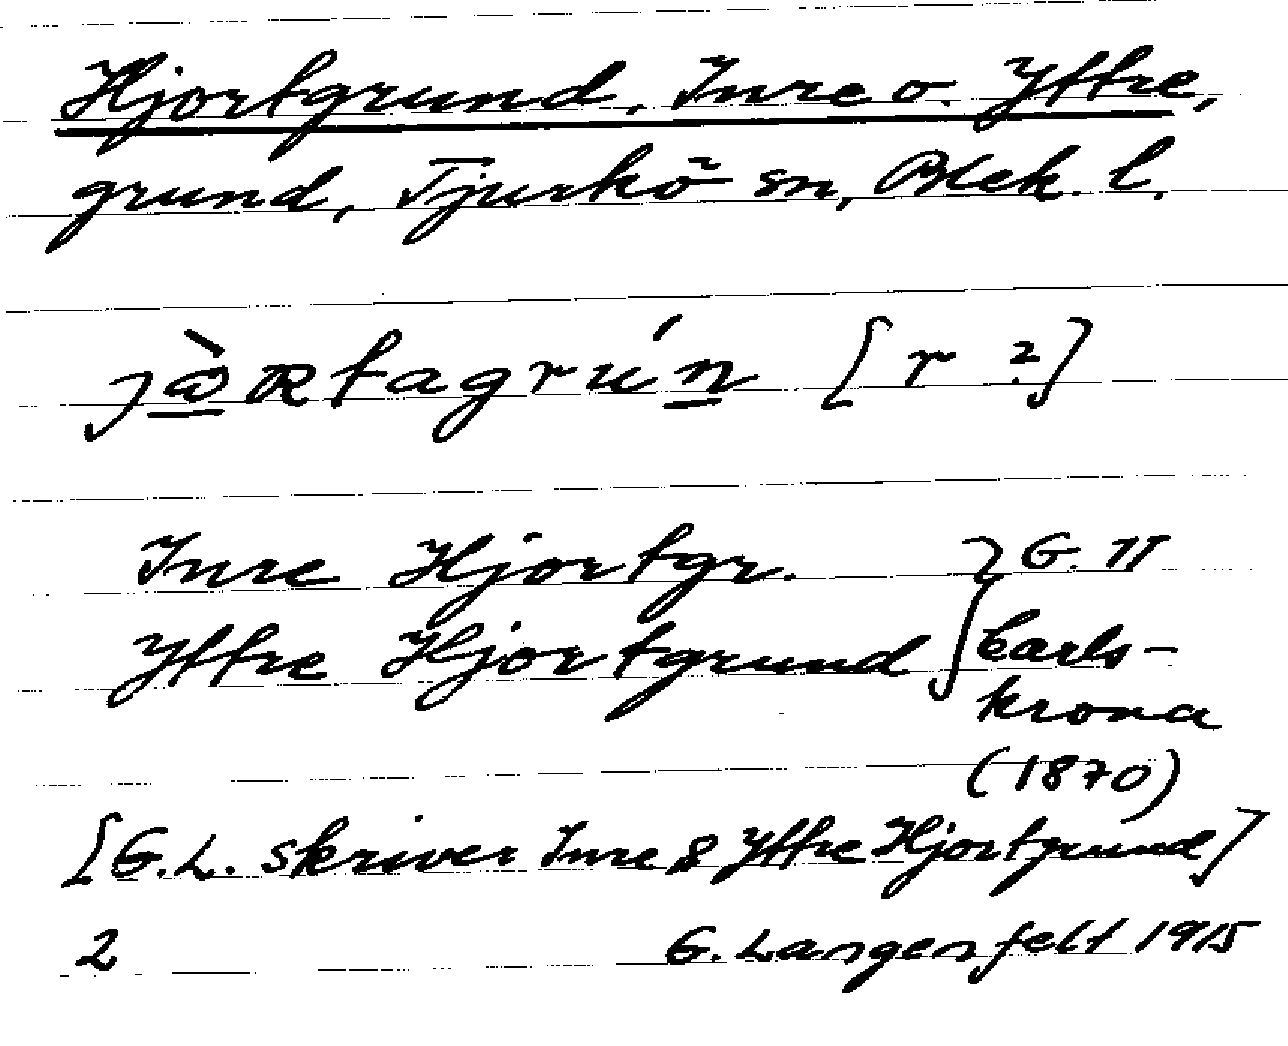 Hjortgrund, Inre o. Yttre,
grund, Tjurkö sn, Blek. l.
jòRtagrún [r ?]
Inre Hjortgr. } G. II
Yttre Hjortgrund } Carls-
krona
(1870)
[G.L. skriver Inre & Yttre Hjortgrund]
2 G. Langenfelt 1915